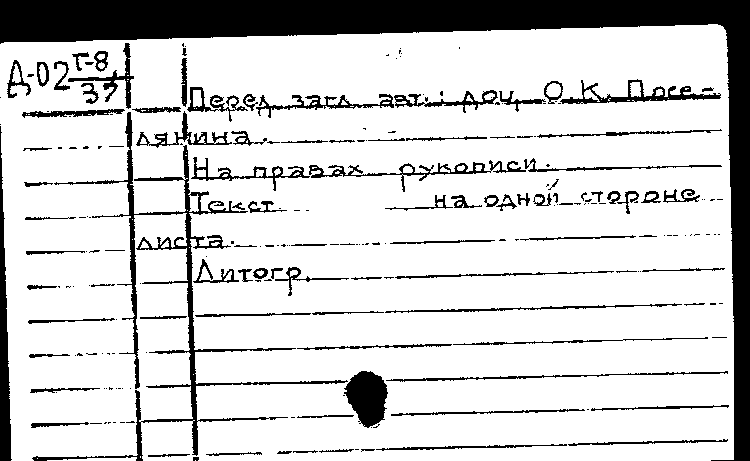 Д-02 Г-8
37
Перед загл. авт.: доц. О.К. Посе-
лянина.
На правах рукописи.
Текст на одной стороне
листа.
Литогр.